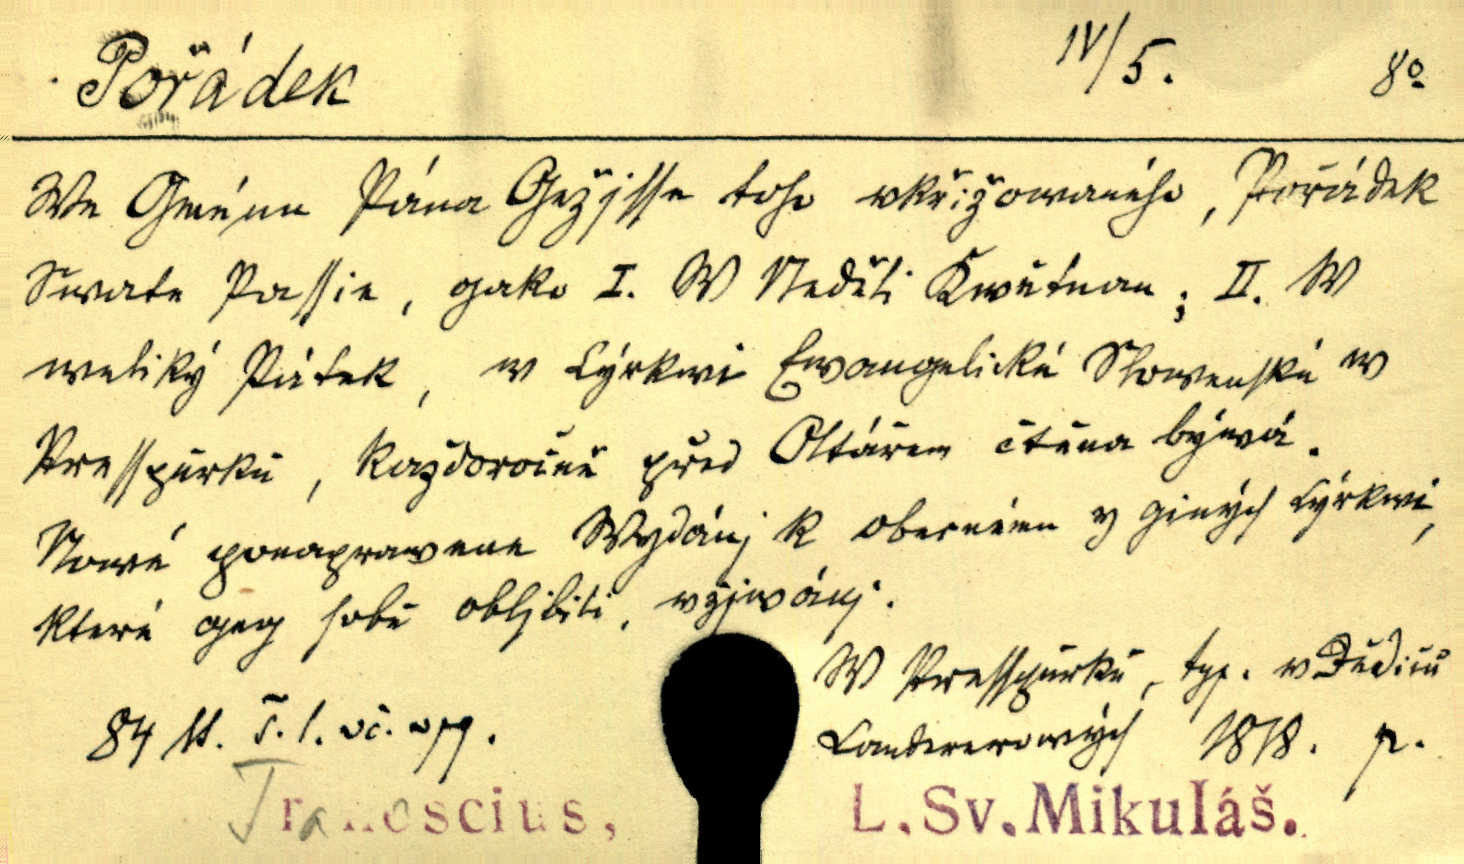 Pořádek IV/5. 8º
We Gménu Pána Gežjsse toho vkřižowaného, Pořádek
Swaté Passie, gako I. W Neděli Kwětnau; II. W
weliký Pátek, w Cýrkwi Ewangelické Slowenské w
Presspůrku, každoročně před Oltářem čtěna býwá.
Nowé ponaprawene Wydánj k obecnému y giných Cýrkwi,
které geg sobě obljbili, vžjwánj.
W Presspůrku, typ. v Dědiců
84 st. č. l. vč. Landererowých 1818. p.
Tranoscius, L. Sv. Mikuláš.